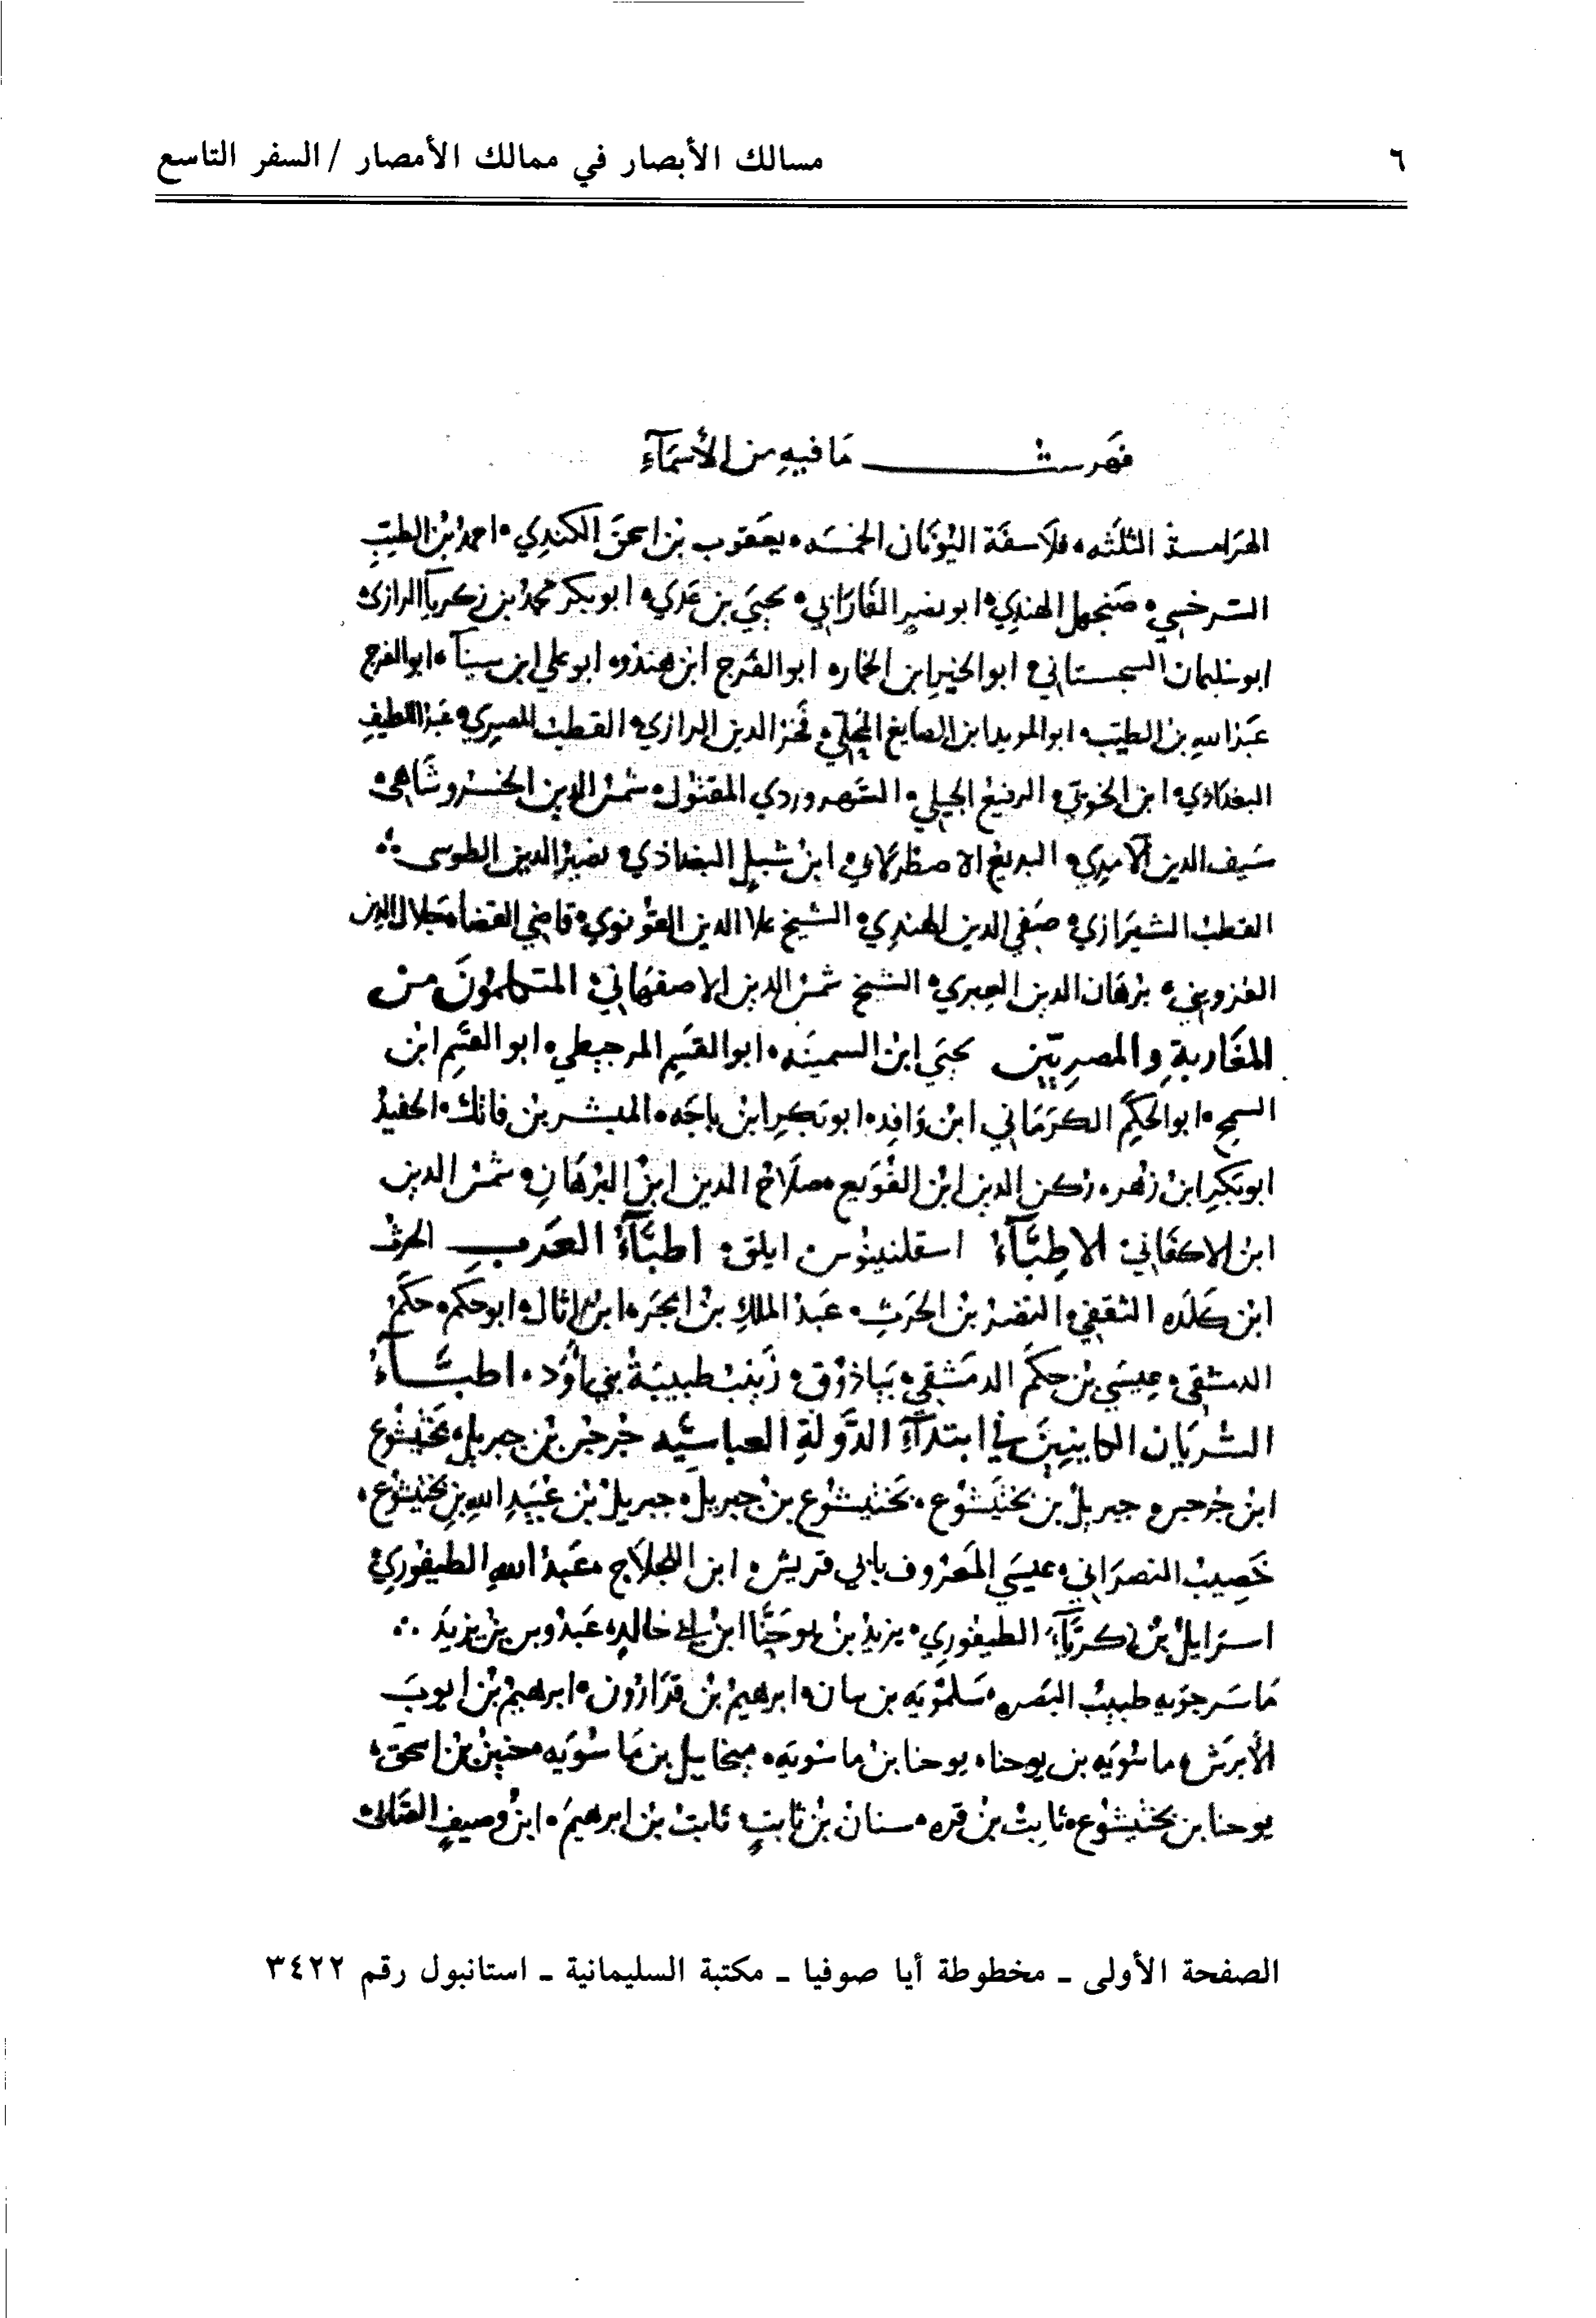 ٦
مسالك الأبصار في ممالك الأمصار / السفر التاسع
فهرست ما فيه من الأسمآء
الهرامسة الثلثه • فلاسفة اليونان الخمسه • يعقوب بن اسحق الكندي • احمد بن الطيب
السرخسي • صنجهل الهندي • ابو نصر الفارابي • يحيي بن عدي • ابو بكر محمد بن زكريآ الرازي •
ابو سليمان السجستاني • ابو الخير ابن الخمار • ابو الفرج ابن هندو • ابو علي ابن سينآ • ابو الفرج
عبد الله بن الطيب • ابو المويد ابن الصايغ • فخر الدين الرازي • القطب المصري • عبد اللطيف
البغداذي • ابن الخويي • الرفيع الجيلي • السهروردي المقتول • شمس الدين الخسروشاهي •
سيف الدين الآمدي • البديع الاصطرلابي • ابن شبل البغداذي • نصير الدين الطوسى
القطب الشيرازي • صفي الدين الهندي • الشيخ علا الدين القونوي • قاضي القضاه جلال الدين
القزويني • برهان الدين العبري • الشيخ شمس الدين الاصفهاني • المتكلمون من
المغاربة والمصريين يحيي ابن السمينه • ابو القسم المرجيطي • ابو القسم ابن
السمح • ابو الحكم الكرماني ابن وافد • ابو بكر ابن باجه • المبشر بن فاتك • الحفيد
ابو بكر ابن زهر • ركن الدين ابن القوبع • صلاح الدين ابن البرهان • شمس الدين
ابن الاكفاني • الاطبآء اسقلنبيوس ايلق • اطبآء العرب الحرث
ابن كلده الثقفي • النضر بن الحرث • عبد الملك بن ابجر • ابن اثال • ابو حكم • حكم
الدمشقي • عيسي بن حكم الدمشقي • تياذوق • زينب طبيبة بني اود • اطبآء
السريان الكاينين في ابتدآء الدولة العباسيه جرجس بن جبريل • بختيشوع
ابن جرجس • جبريل بن بختيشوع • بختيشوع بن جبريل • جبريل بن عبيد الله بن بختيشوع •
خصيب النصراني • عيسي المعروف بابي قريش • ابن اللجلاج • عبد الله الطيفوري •
اسرايل بن زكريآء الطيفوري • يزيد بن يوحنا ابن ابي خالد • عبدوس بن يزيد
ماسرجويه طبيب البصره • سلمويه بن بنان • ابرهيم بن فزارون • ابرهيم بن ايوب
الأبرش • ماسويه بن يوحنا • يوحنا بن ماسويه • ميخاييل بن ماسويه • حنين بن اسحق •
يوحنا بن بختيشوع • ثابت بن قره • سنان بن ثابت • ثابت بن ابرهيم • ابن وصيف الصابي •
الصفحة الأولى - مخطوطة أيا صوفيا - مكتبة السليمانية - استانبول رقم ٣٤٢٢